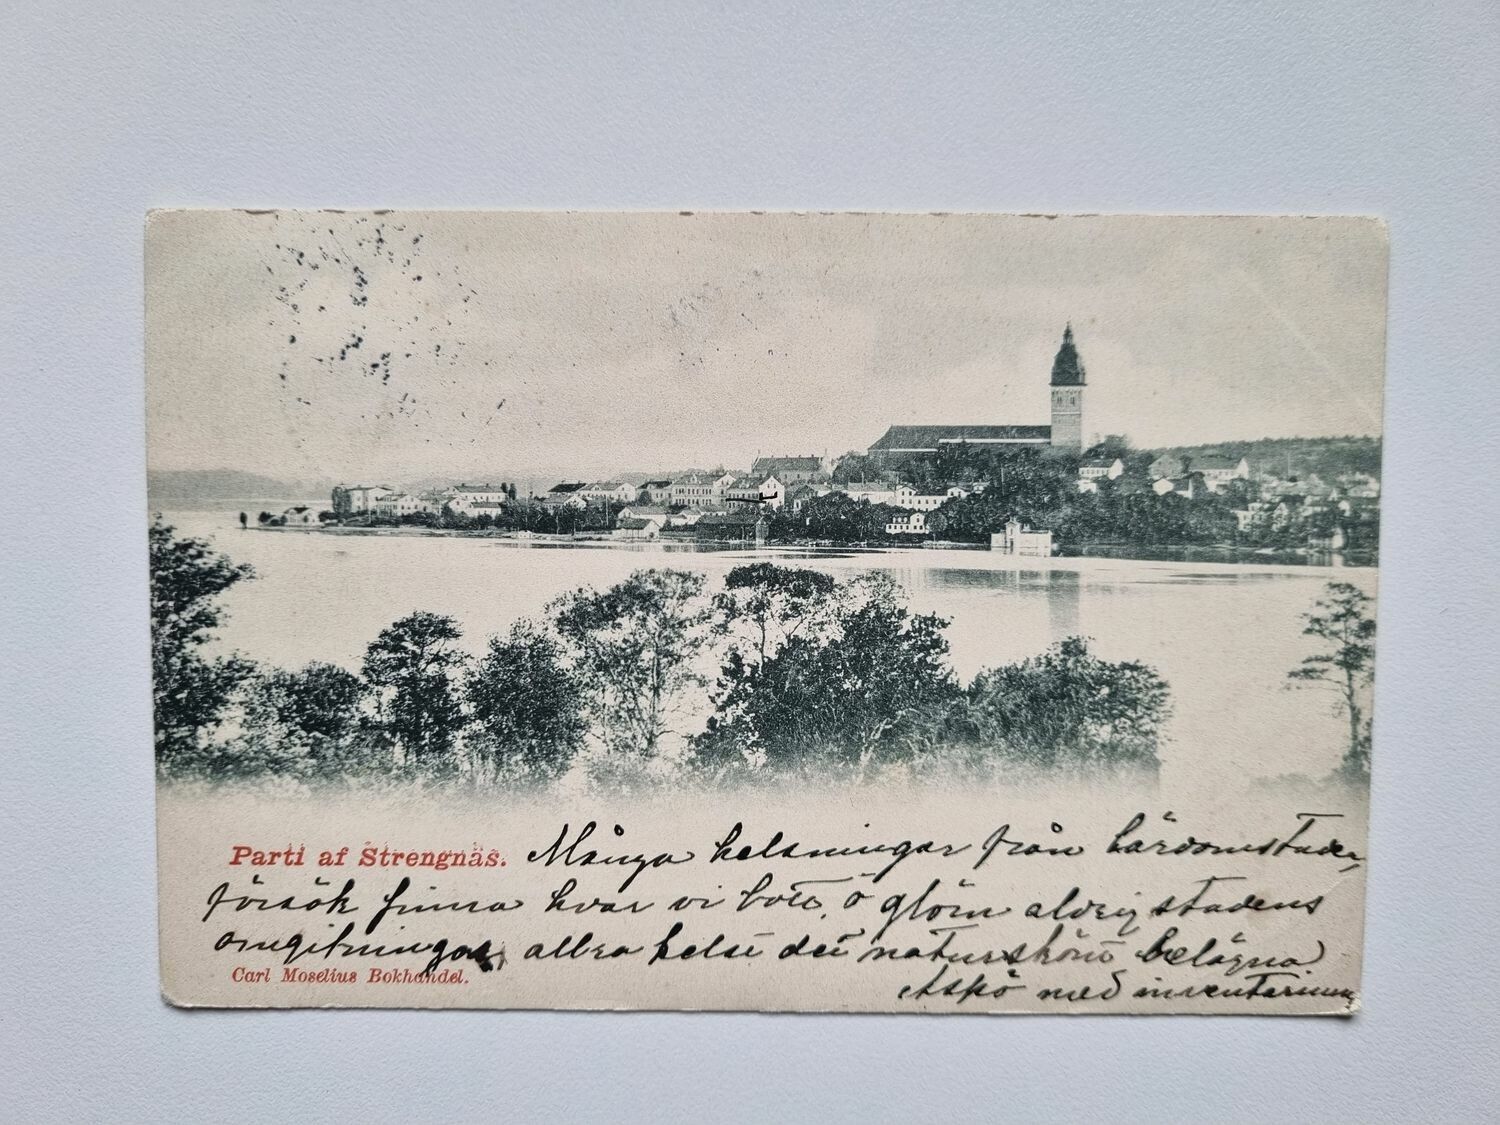 Parti af Strengnäs.
Många helsningar från lärdomstaden,
försök finna hvar vi bott, ö glöm aldrig stadens
omgifningar, allra helst det naturskönt belägna
Askö med inventarium
Carl Moselius Bokhandel.